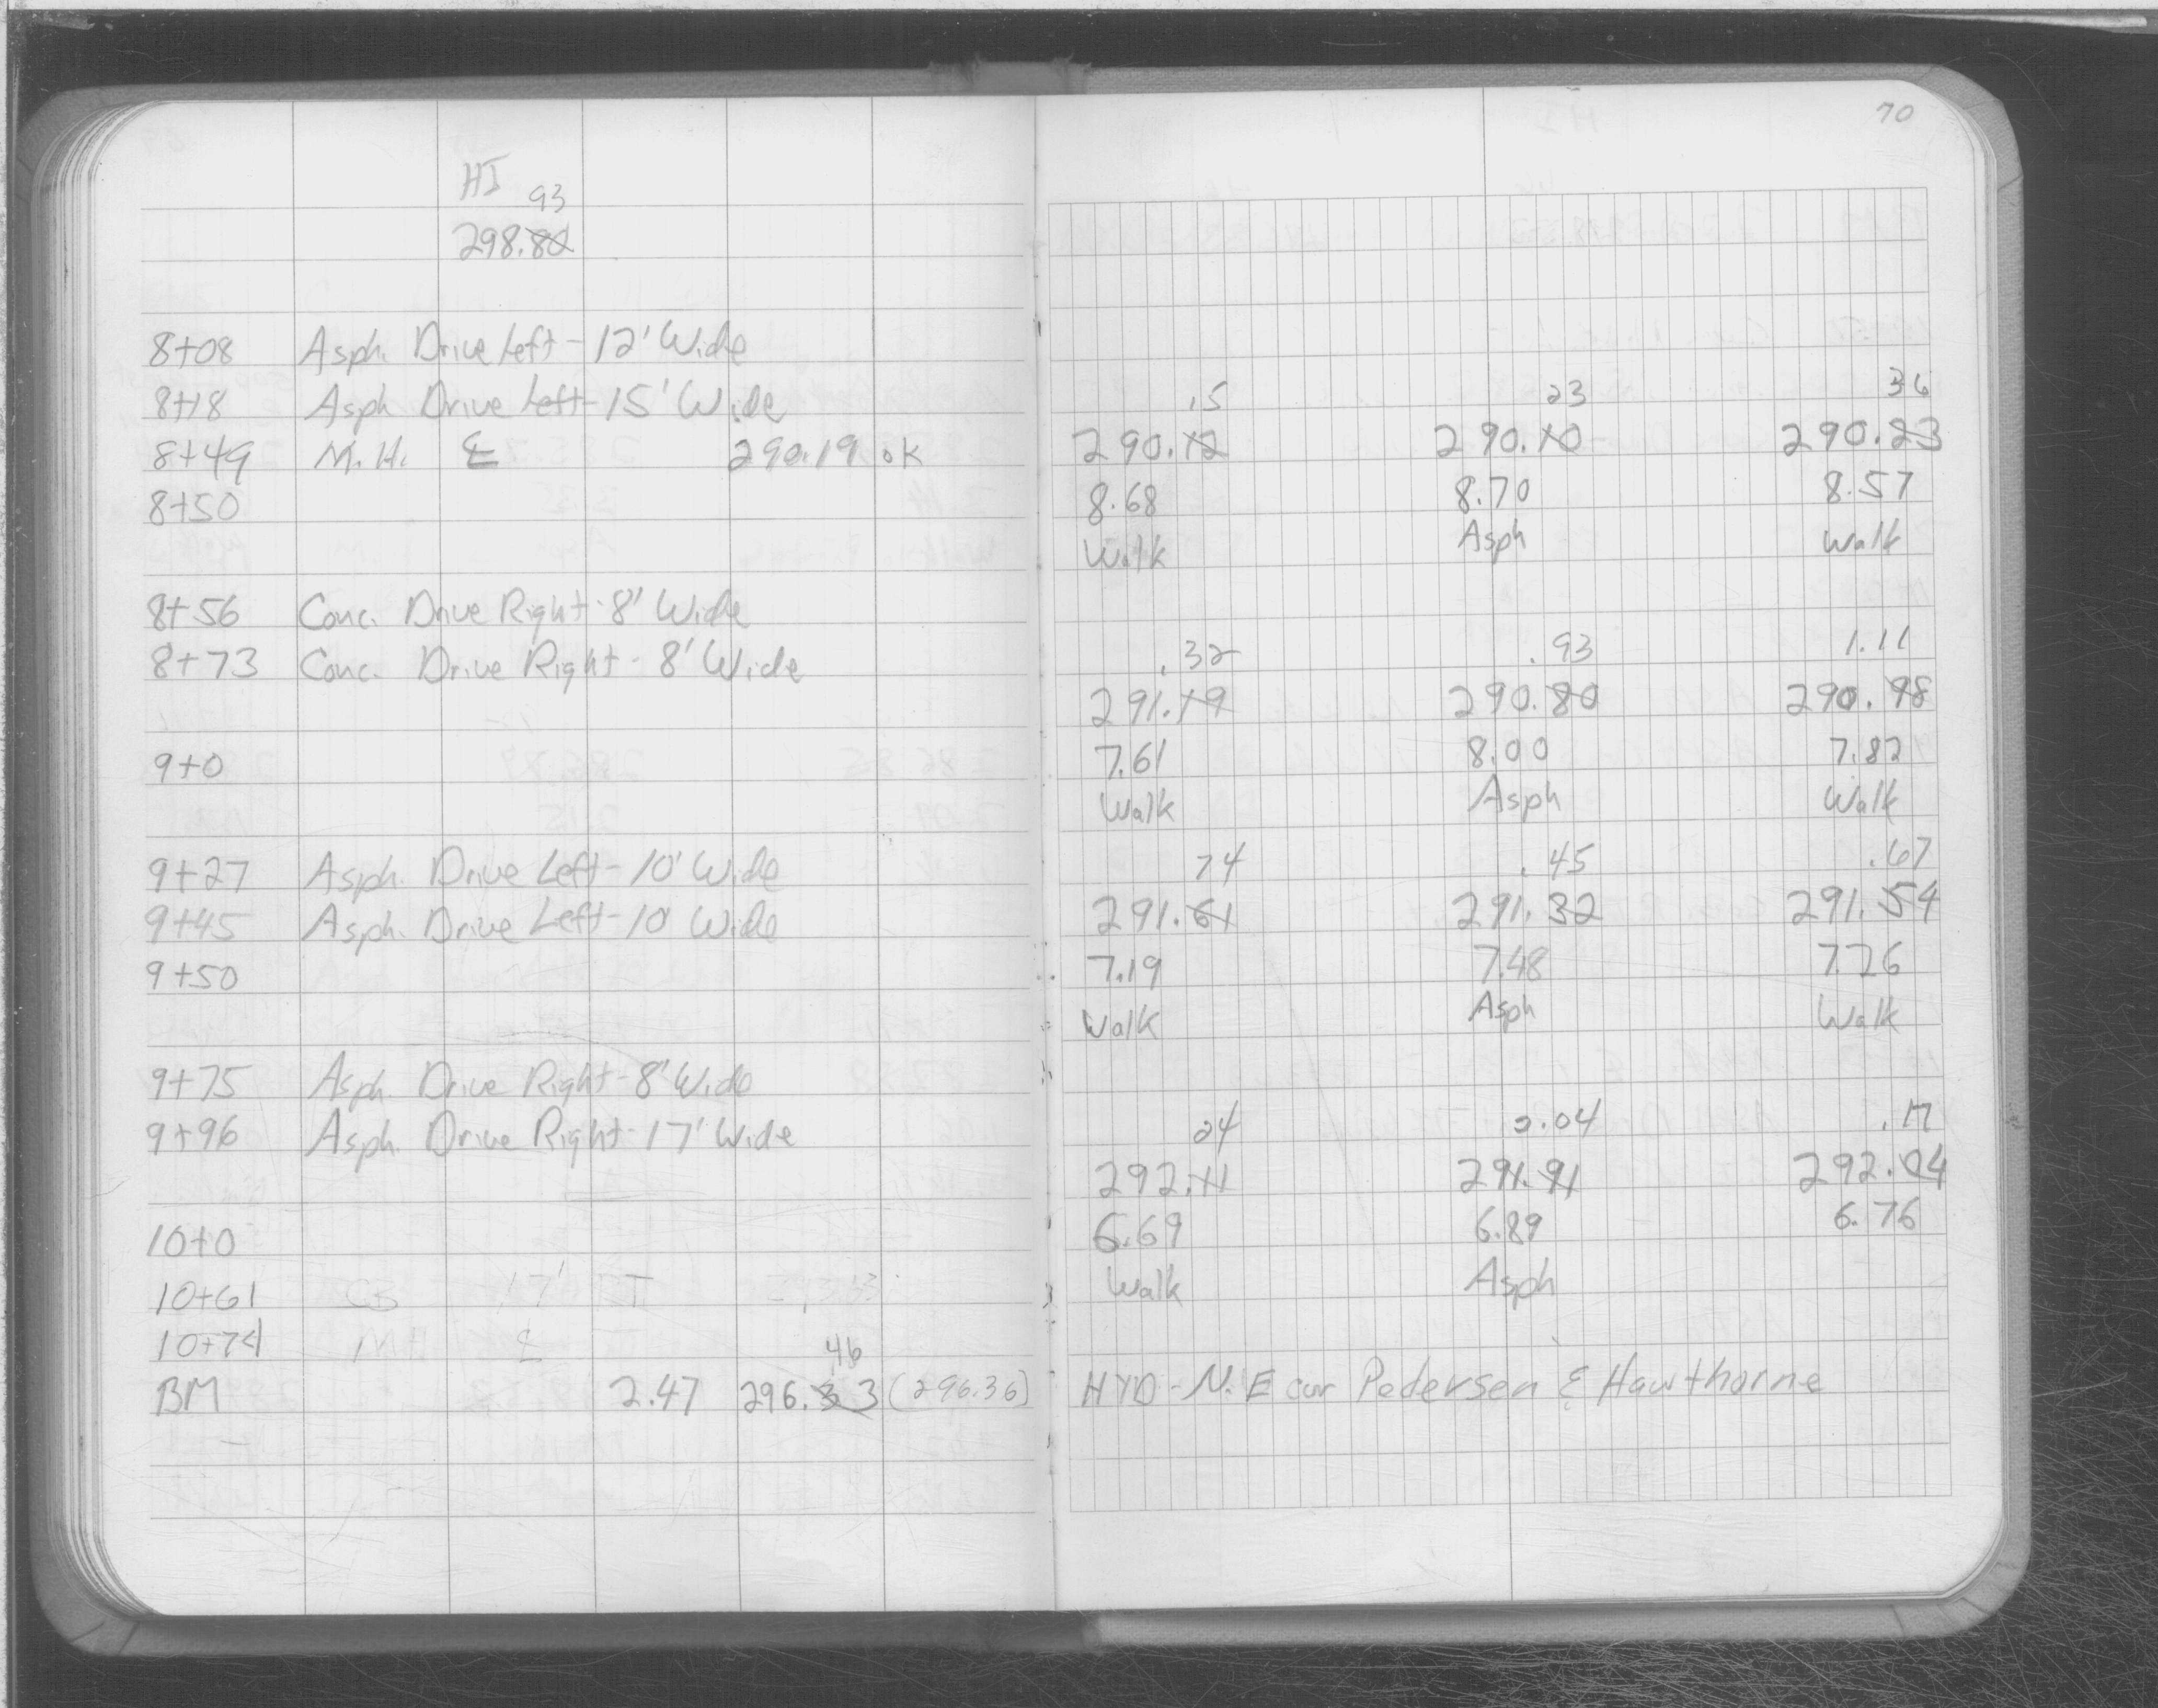 70
HI
93
298.80
8+08 Asph. Drive Left - 12' Wide
8+18 Asph Drive Left - 15' Wide
.15 23 36
8+49 M.H. ℄ 290.19 ok 290.12 290.10 290.23
8+50 8.68 8.70 8.57
Walk Asph Walk
8+56 Conc. Drive Right - 8' Wide
8+73 Conc. Drive Right - 8' Wide
.32 .93 1.11
291.19 290.80 290.98
9+0 7.61 8.00 7.82
Walk Asph Walk
9+27 Asph. Drive Left - 10' Wide
74 .45 .67
9+45 Asph. Drive Left - 10' Wide 291.61 291.32 291.54
9+50 7.19 7.48 7.26
Walk Asph Walk
9+75 Asph. Drive Right - 8' Wide
9+96 Asph. Drive Right - 17' Wide
24 2.04 .17
292.11 291.91 292.04
10+0 6.69 6.89 6.76
Walk Asph
10+61 CB 17'
10+74 MH ℄
46
BM 2.47 296.33 (296.36) HYD - N.E cor Pedersen & Hawthorne